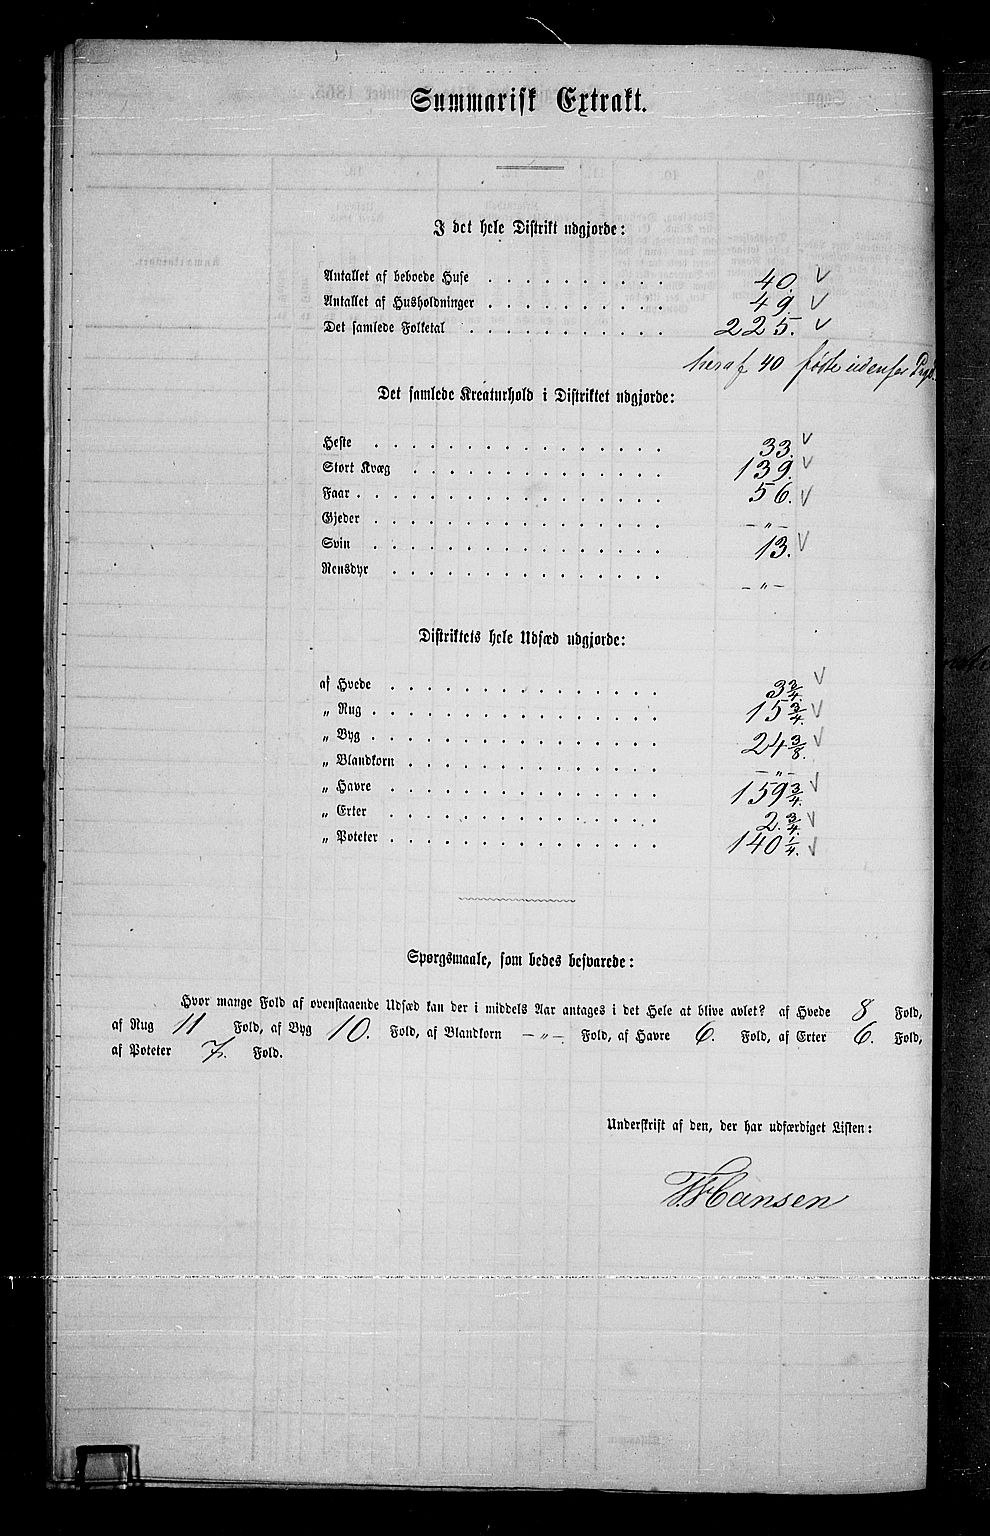 Summarisk Extrakt.
I det hele Distrikt udgjorde:
Antallet af beboede Huse . . . . . . . . . . 40.
Antallet af Husholdninger . . . . . . . . . . 49.
Det samlede Folketal . . . . . . . . . . . 225.
heraf 40 fødte udenfor
Det samlede Kreaturhold i Distriktet udgjorde:
Heste . . . . . . . . . . . . . . . . 33.
Stort Kvæg . . . . . . . . . . . . . . 139.
Faar . . . . . . . . . . . . . . . . . 56.
Gjeder . . . . . . . . . . . . . . . . – „ –
Svin . . . . . . . . . . . . . . . . 13.
Rensdyr . . . . . . . . . . . . . . . – „ –
Distriktets hele Udsæd udgjorde:
af Hvede . . . . . . . . . . . . . . . 3 3/4.
„ Rug . . . . . . . . . . . . . . . . 15 3/4.
„ Byg . . . . . . . . . . . . . . . . 24 3/8.
„ Blandkorn . . . . . . . . . . . . . . – „ –
„ Havre . . . . . . . . . . . . . . . 159 3/4.
„ Erter . . . . . . . . . . . . . . . 2. 3/4.
„ Poteter . . . . . . . . . . . . . . . 140 1/4.
Spørgsmaale, som bedes besvarede:
Hvor mange Fold af ovenstaaende Udsæd kan der i middels Aar antages i det Hele at blive avlet? af Hvede 8 Fold,
af Rug 11 Fold, af Byg 10. Fold, af Blandkorn – „ –. Fold, af Havre 6. Fold, af Erter 6. Fold,
af Poteter 7. Fold.
Underskrift af den, der har udfærdiget Listen:
Hansen